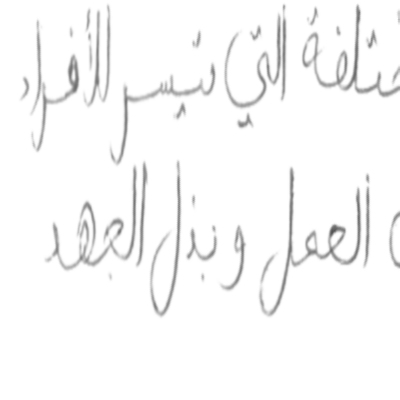 ختلفة التي تيسر للأفراد
العمل وبذل الجهد